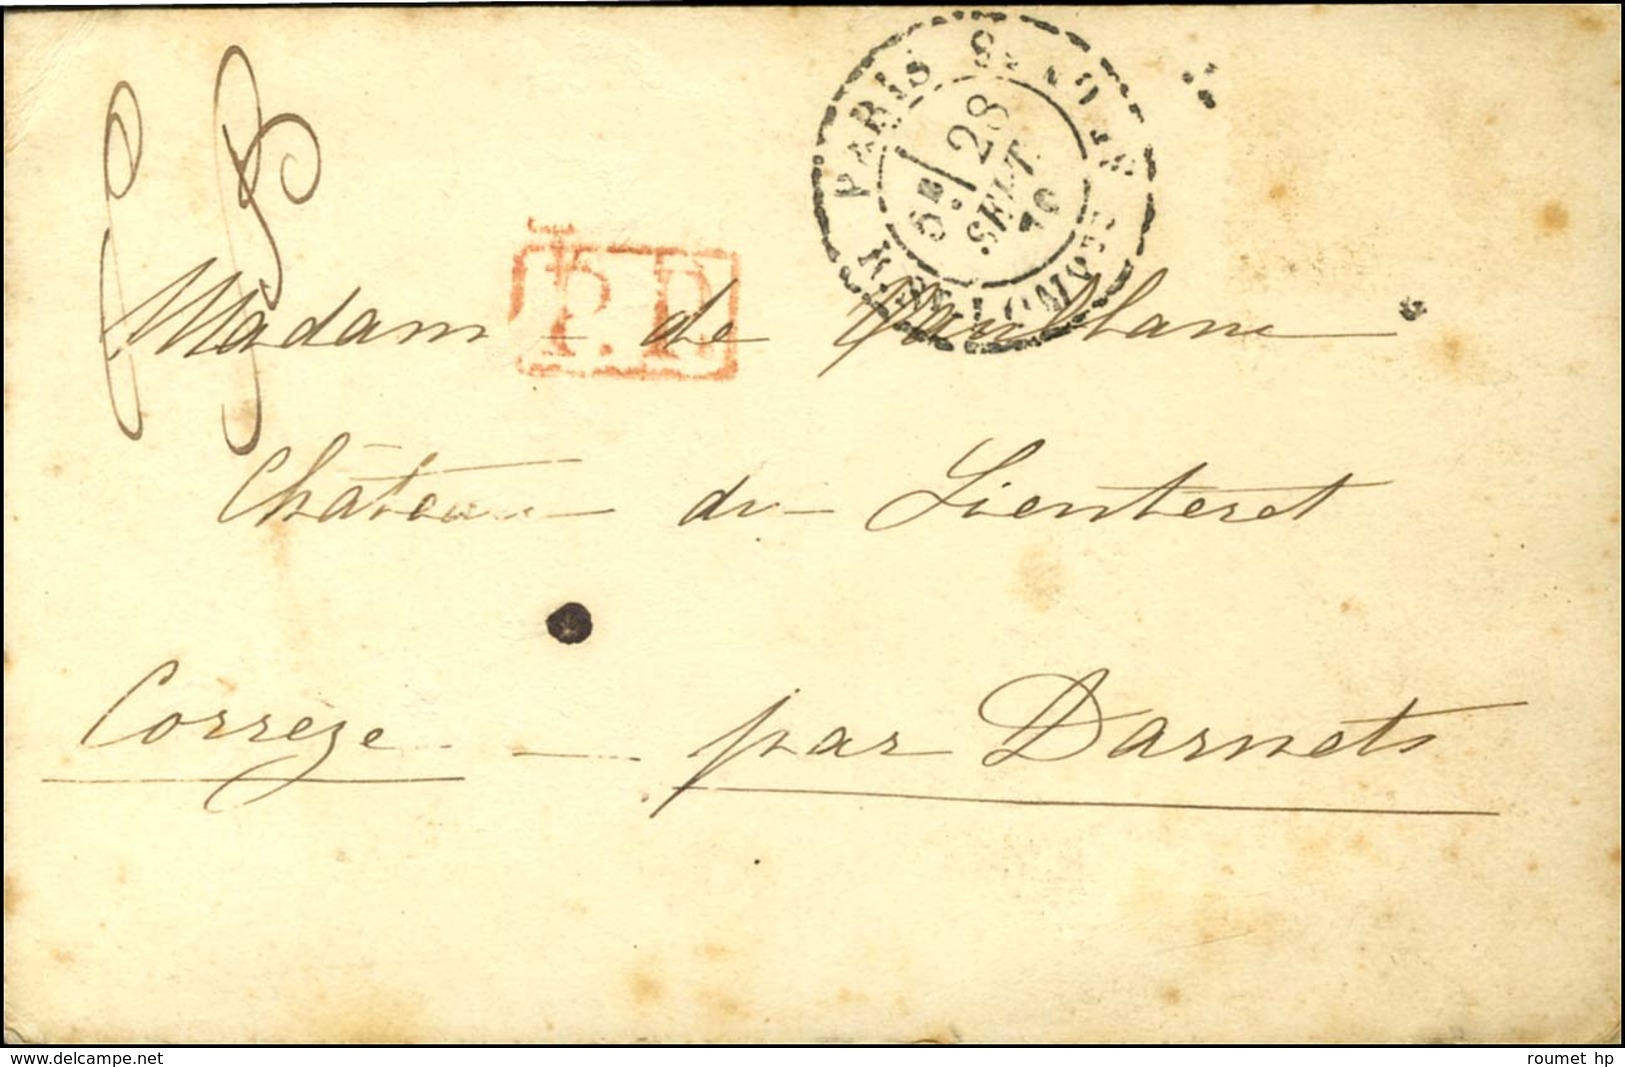 PARIS
5E 28
SEPT.
70
P.P.
Madame de
Château du Lienteret
Corrèze - par Darnets
www.delcampe.net
roumet hp